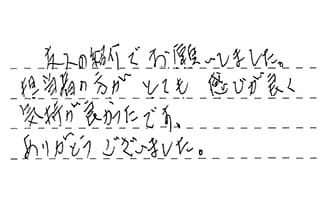 友人の紹介でお願いしました。
担当者の方がとても 感じが良く
気持が良かったです。
ありがとうございました。